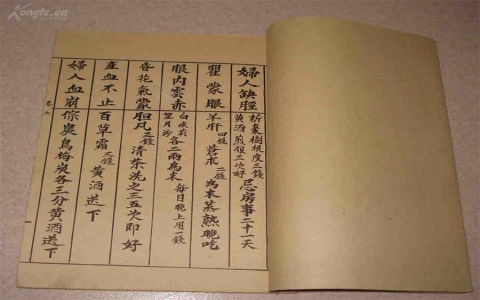 Kongfz.cn
婦人缺 棗樹 三錢 黄酒煎服三次好 忌房事二十一天
瞿蒙眼 羊肝 四錢 蒼朮 二錢 為末蒸熟晚吃
眼内雲赤 望月沙 各二兩為末 每日晚上用一錢
昏花氣蒙 胆凡 三錢 清茶洗之三五次即好
產血不止 百草霜 三錢 黄酒送下
婦人血崩 炭烏梅炭各三分黄酒送下
卷上